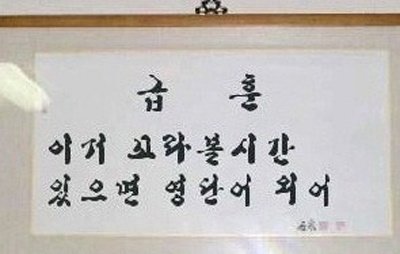 급 훈
이거 꼬라볼시간
있으면 영단어 외어